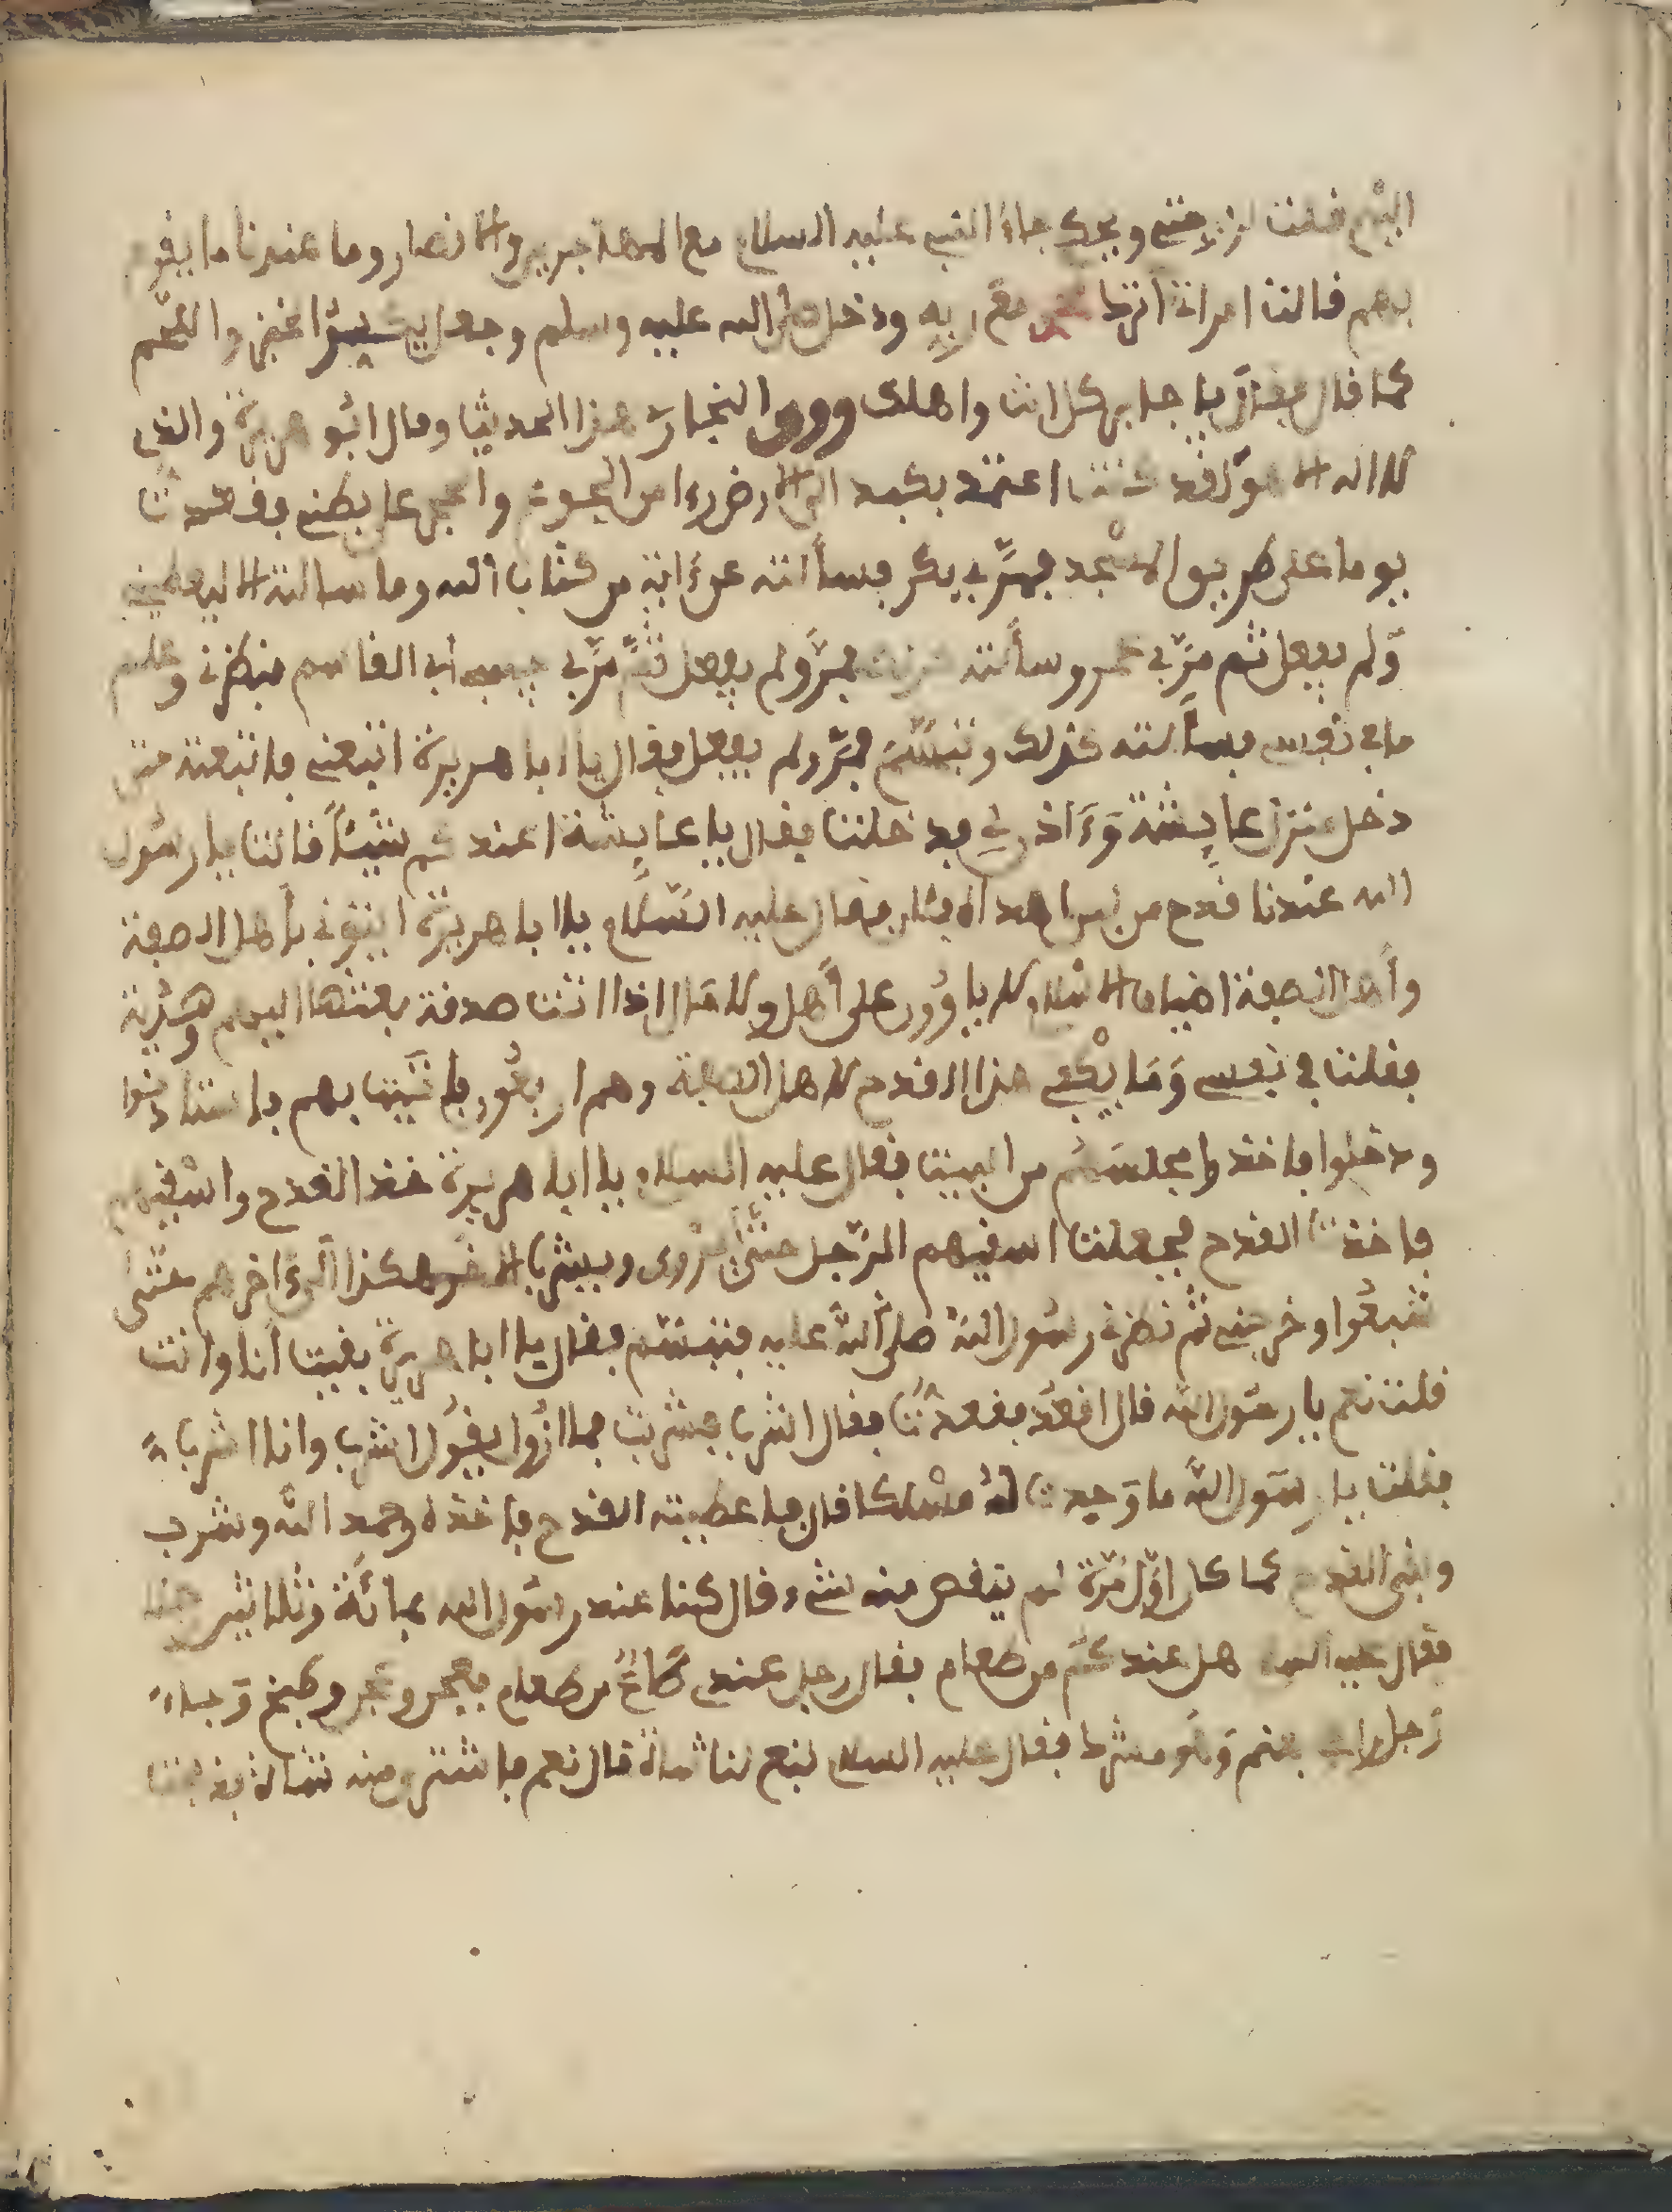 البيت فقلت لزوجتي ويحك جاء النبي عليه السلام مع المهاجرين والانصار وما عندنا ما يقوم
بهم فقالت امراته اتركا ودخل صلى الله عليه وسلم وجعل يكسر الخبز واللحم
كما قال فقال يا جابر كل انت واهلك وروى البخاري هذا الحديث وقال ابو هريرة والذي
لا اله الا هو لقد كنت اعتمد بكبد الى الارض من الجوع والحجر على بطني فقعدت
يوما على طريق المسجد فمر بي بكر فسألته عن ءاية من كتاب الله وما سالته الا ليطعمني
ولم يفعل ثم مر بي عمر وسألته فمر ولم يفعل ثم مر بي حبيب ابي القاسم فنظرني وعلم
ما في نفسي فسألته كذلك وتبسم فمر ولم يفعل فقال يا ابا هريرة اتبعني فاتبعته حتى
دخل منزل عايشة وءاذن لي فدخلت فقال يا عايشة اعندكم شيئا قالت يا رسول
الله عندنا قدح من لبن اهداه فقال عليه السلام يا ابا هريرة ايتوني بأهل الصفة
وأهل الصفة اضياف الاسلام لا ياوون على أهل ولا مال اذا اتت صدقة بعثها اليهم وهدية
فقلت في نفسي وما يكفي هذا القدح لاهل الصفة وهم اربعون فاتيت بهم فاستاذنوا
ودخلوا فاخذوا مجلسهم من البيت فقال عليه السلام يا ابا هريرة خذ القدح واسقيهم
فاخذت القدح فجعلت اسقيهم الرجل حتى يروى ويشرب الاخر هكذا الى ءاخرهم حتى
شبعوا وخرجت ثم نظرني رسول الله صلى الله عليه فتبسم فقال يا ابا هريرة بقيت انا وانت
قلت نعم يا رسول الله قال اقعد فقعدت فقال اشرب فشربت فما ازوا يقول اشرب وانا اشرب
فقلت يا رسول الله ما وجدت له مسلكا قال فاعطيته القدح فاخذه وحمد الله وشرب
وبقى القدح كما كان اول مرة لم ينقص منه شيء وقال كنا عند رسول الله بمائة وثلاثين
فقال عليه السلام هل عندكم من طعام فقال رجل عندي صاع من طعام فعجن وطبخ وجاء
رجل بغنم وهو مشرك فقال عليه السلام لتبع لنا شاة قال نعم فاشترى منه شاة